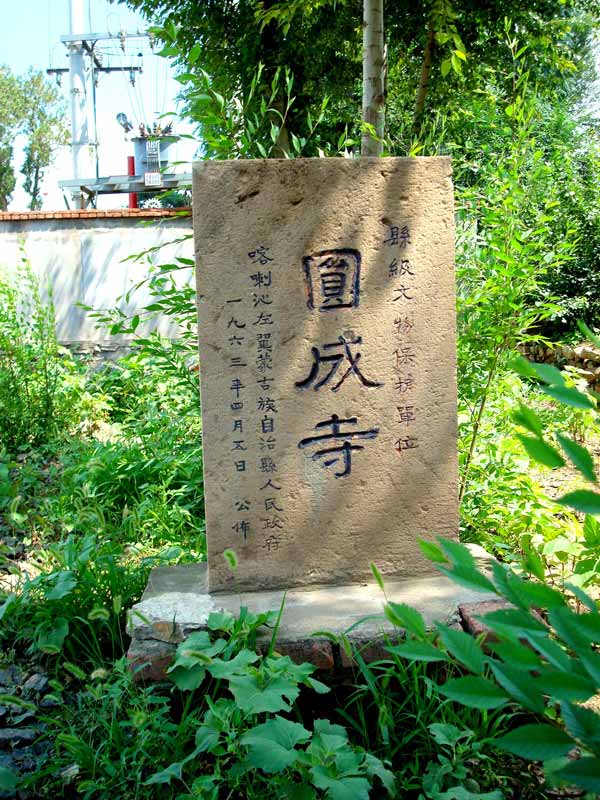 縣級文物保护單位
圓成寺
喀喇沁左翼蒙古族自治縣人民政府
一九六三年四月五日 公佈